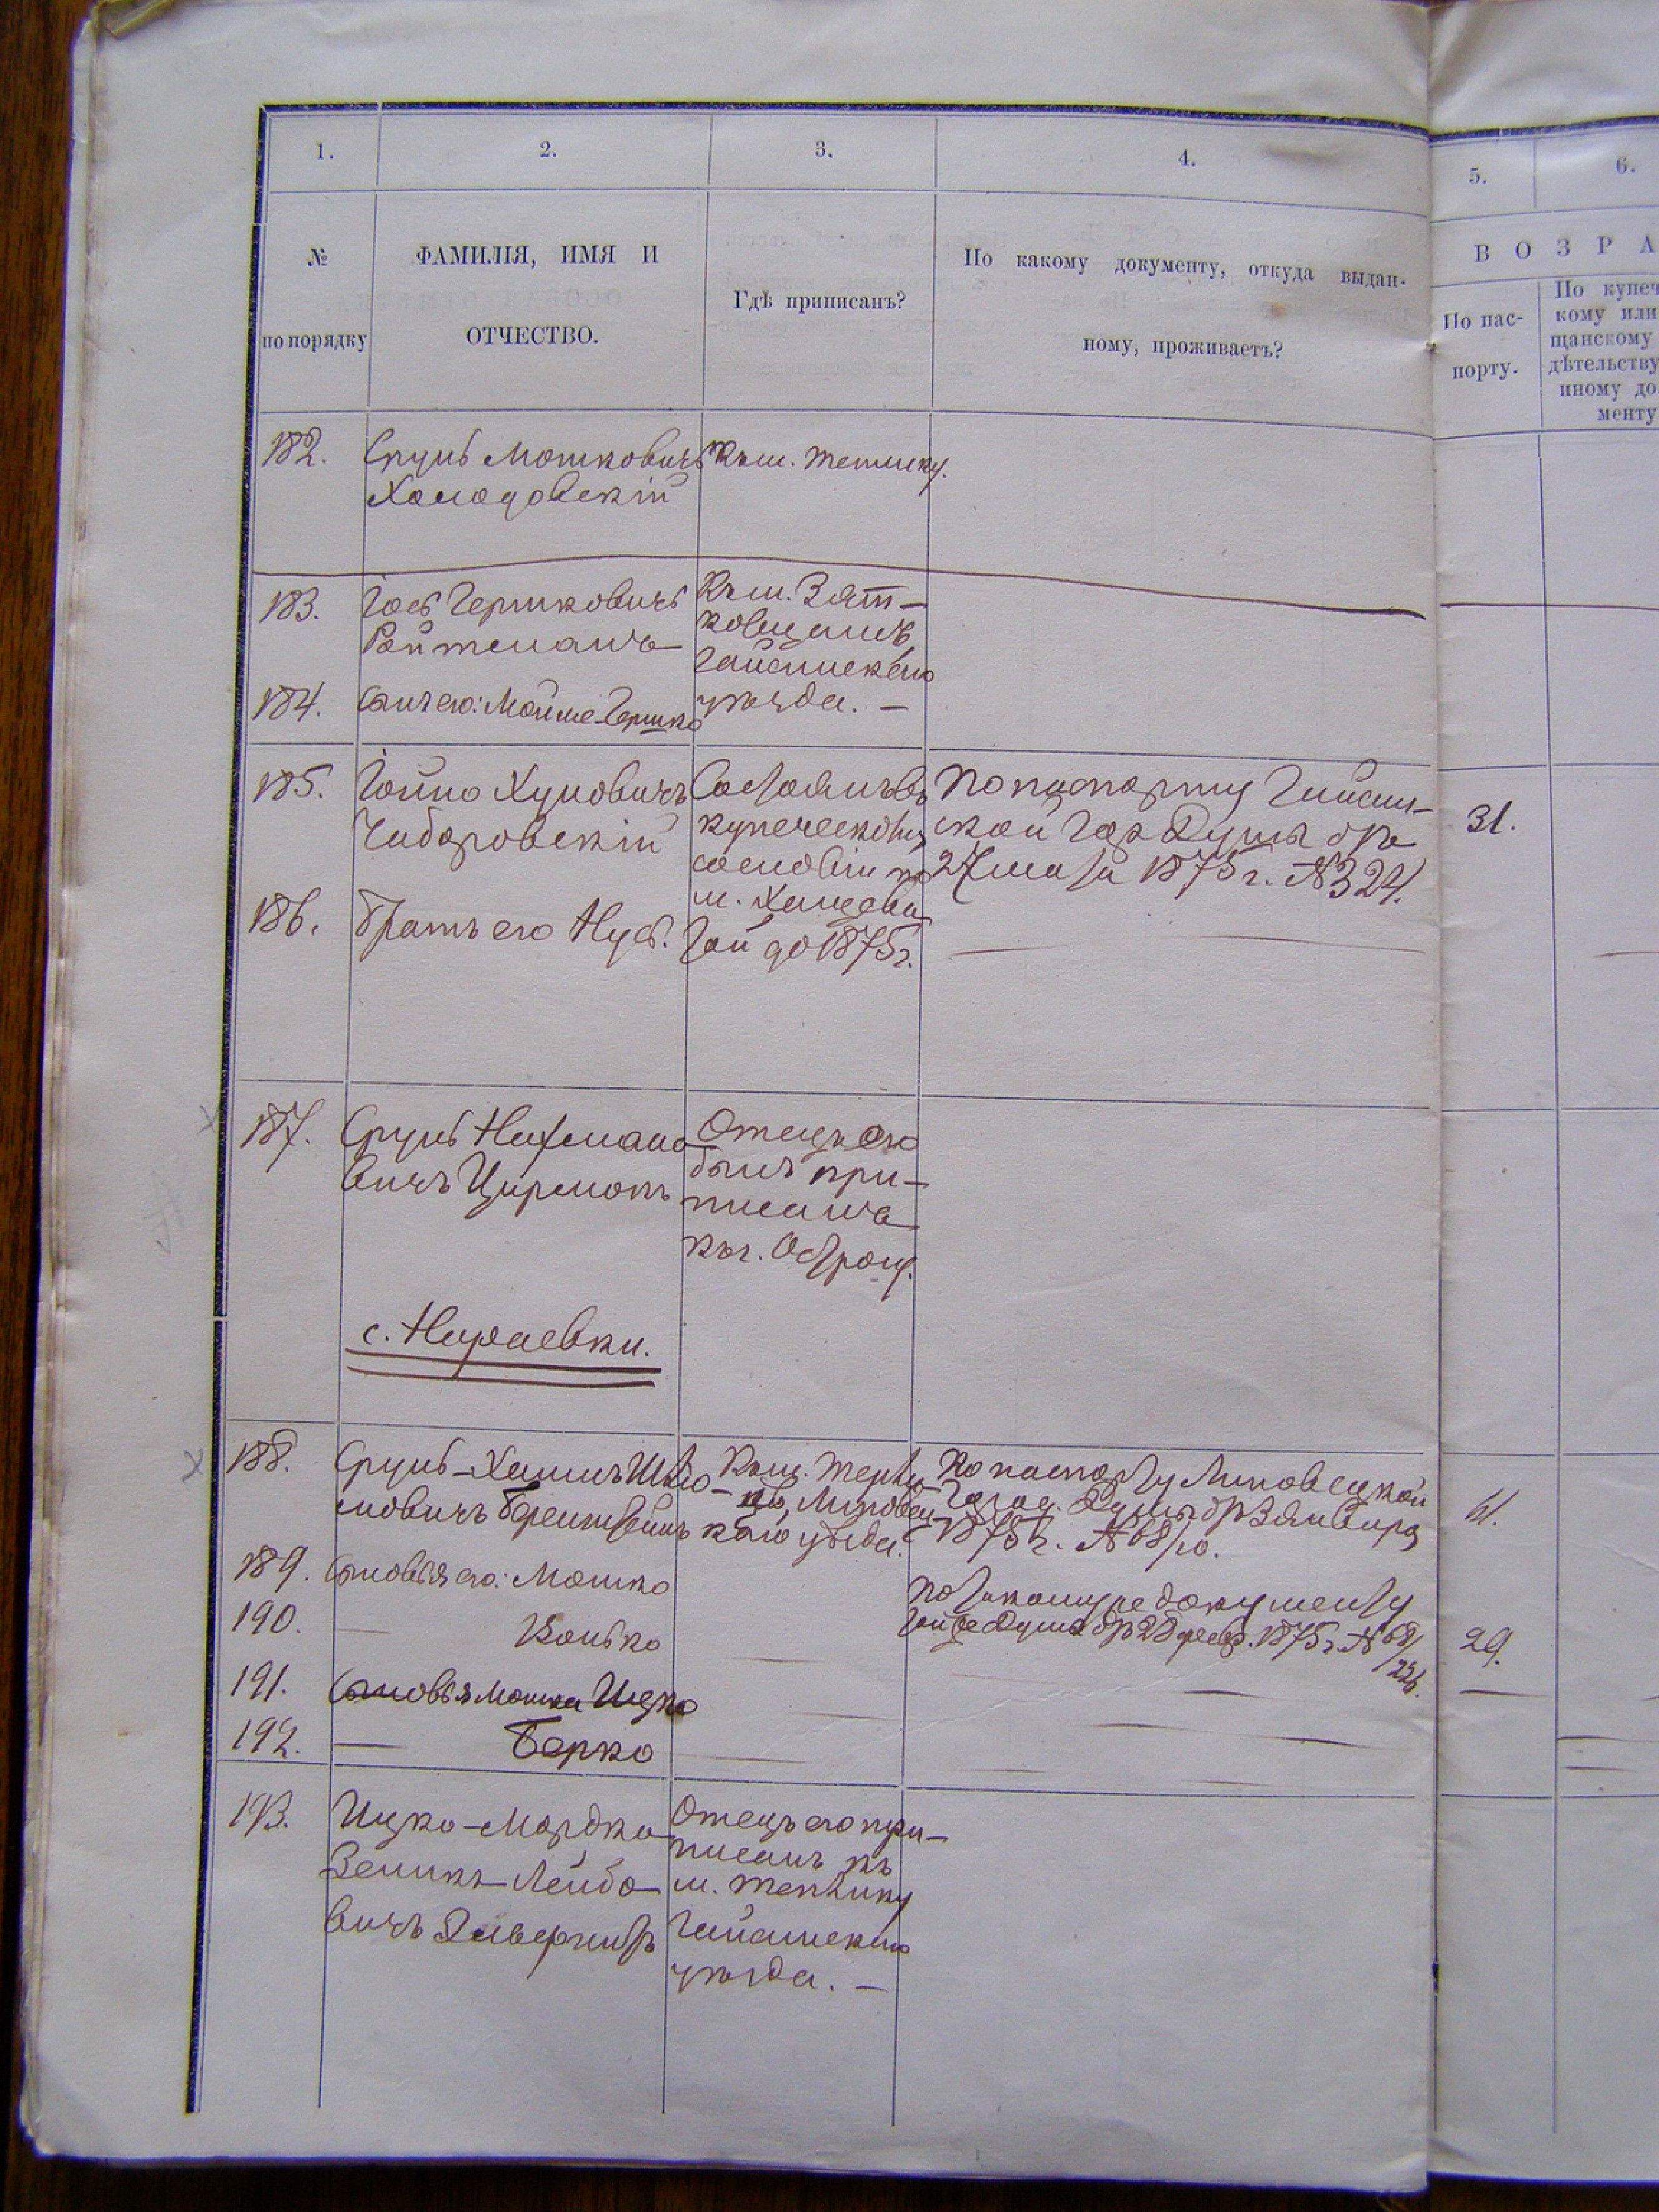 1.
2.
3.
4.
5.
6.
№
по порядку
ФАМИЛІЯ, ИМЯ И
ОТЧЕСТВО.
Гдѣ приписанъ?
По какому документу, откуда выдан-
ному, проживаетъ?
В О З Р А
По пас-
порту.
По купеч
кому или
щанскому
дѣтельству
иному до
менту
182.
Сруль Мошковичъ
Холодовскій
Къ м. Теплику.
183.
Іось Гершковичъ
Ройтманъ
Къ м. Зят-
ковцамъ,
Гайсинскаго
уѣзда. —
184.
Сынъ его: Мойше-Гершко
185.
Іойно Хуновичъ
Чидоровскій
Состоялъ въ
купеческомъ
сословіи по
м. Хащева
той до 1875 г.
По паспорту Гайсин-
ской Гор Думы отъ
27 мая 1875 г. № 324.
31.
186.
Братъ его Нусь.
187.
Сруль Нахмано
вичъ Цирмокъ
Отецъ его
былъ при-
писанъ
къ г. Острогу.
с. Нараевки.
188.
Сруль-Хаимъ Шло-
мовичъ Беренштейнъ
Къ м. Терли-
Липовец-
каго уѣзда.
По паспорту Липовецкой
Город. Думы отъ 3 Января
1875 г. № 68/10.
61.
189.
Сыновья его: Мошко
190.
— Волько
По такому же документу
той же Думы отъ 28 февр. 1875 г. № 68/
226.
29.
191.
Сыновья Мошка Ицко
192.
— Берко
193.
Ицко-Мордко
Зеликъ-Лейбо
вичъ
Отецъ его при-
писанъ къ
м. Теплику
Гайсинскаго
уѣзда. —